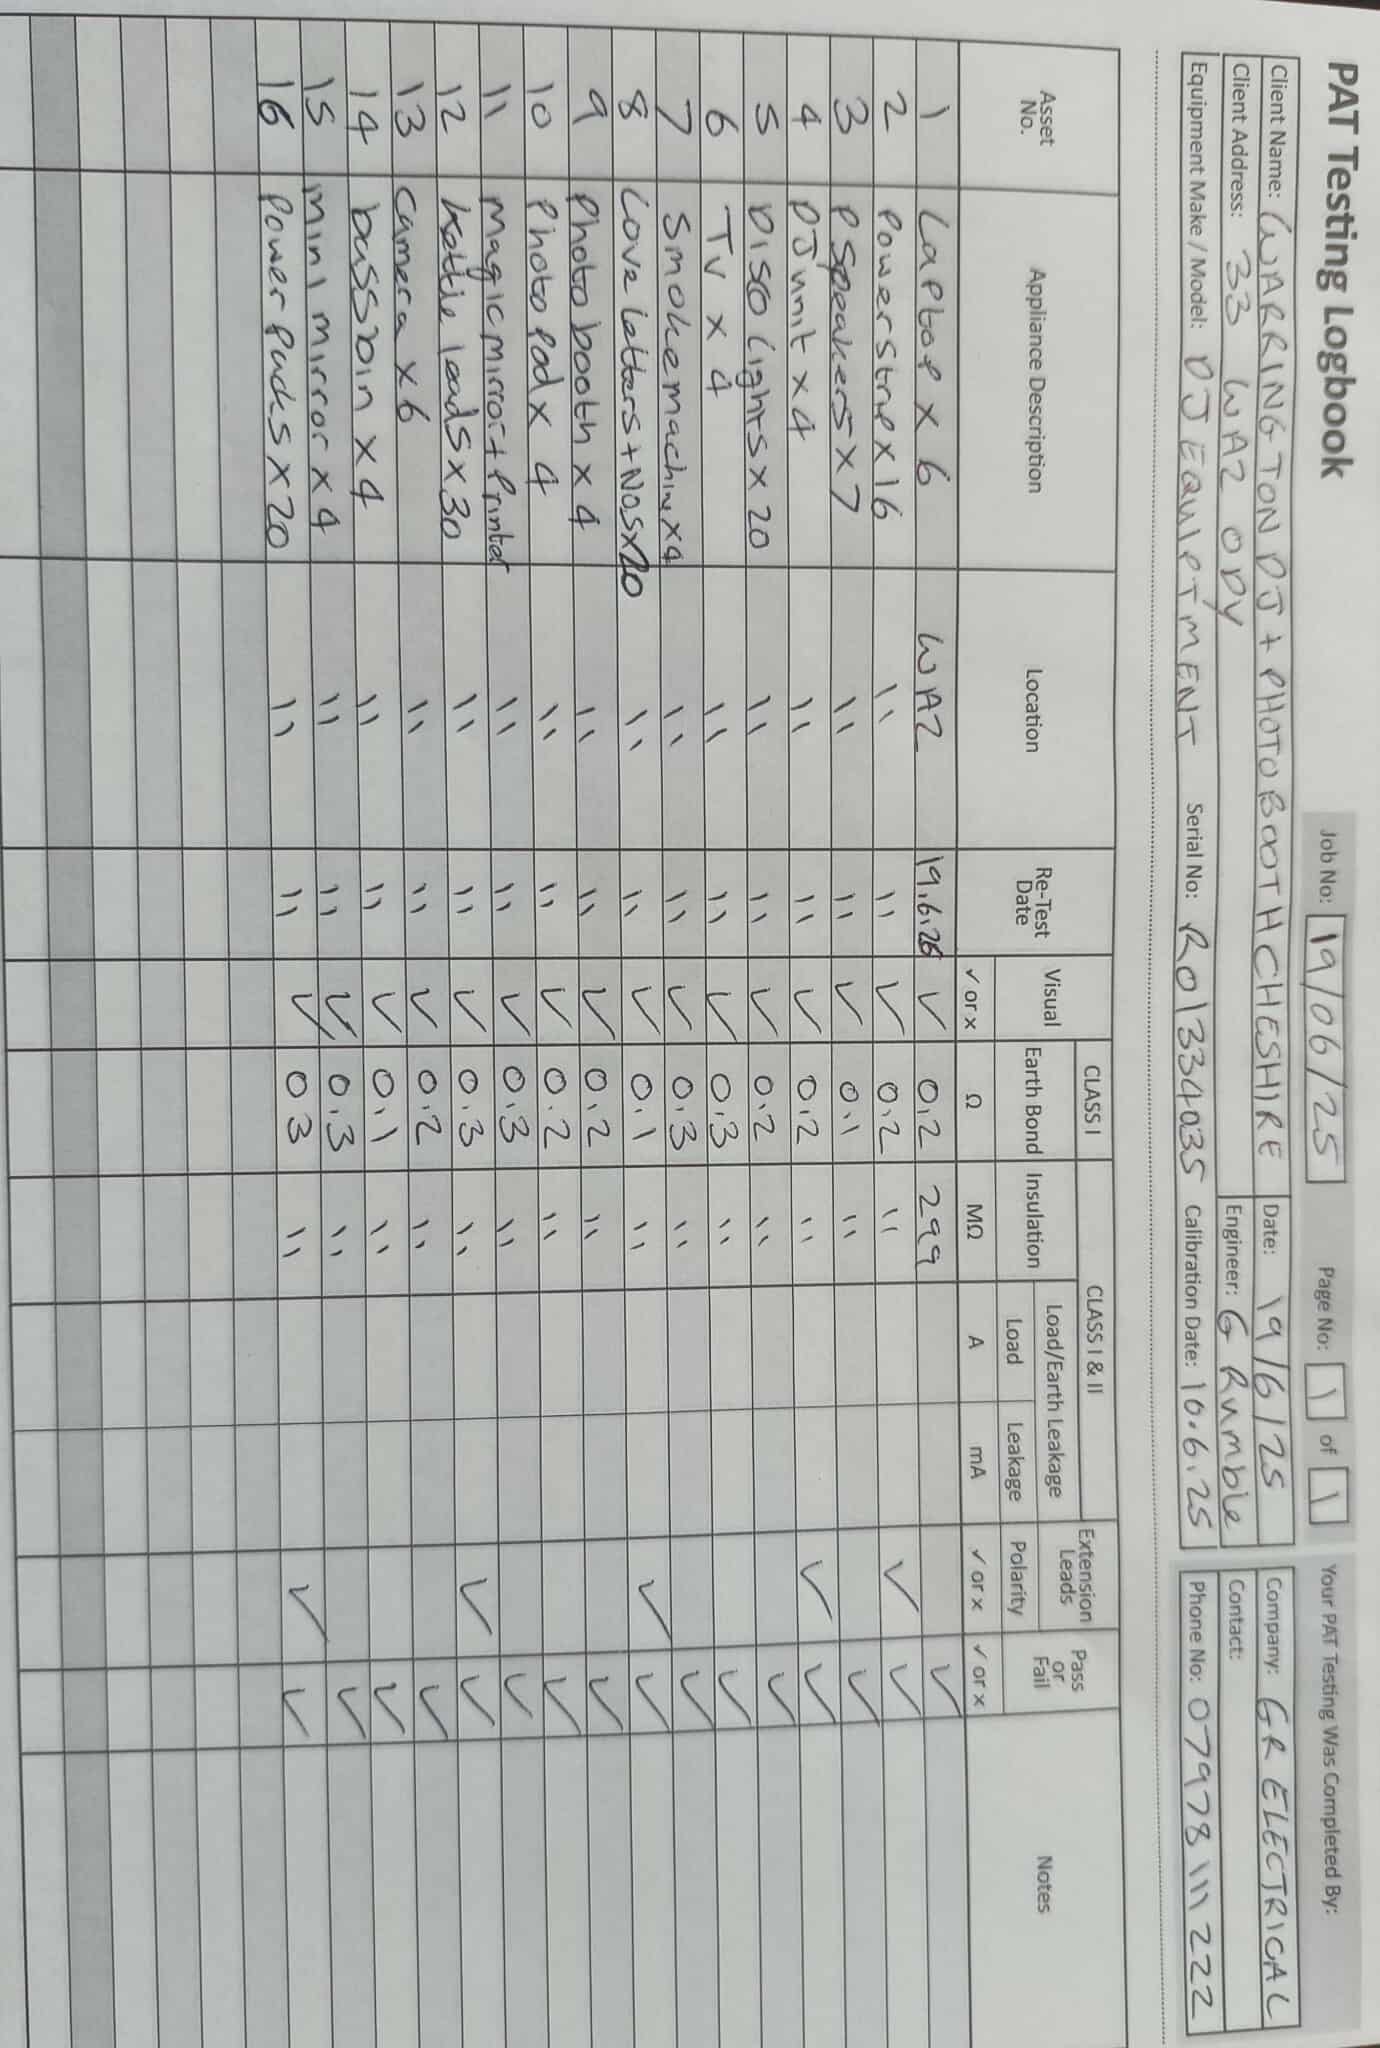 PAT Testing Logbook
Job No: 19/06/25 Page No: 1 of 1 Your PAT Testing Was Completed By:
Client Name: WARRINGTON DJ + PHOTO BOOTH CHESHIRE Date: 19/6/25 Company: GR ELECTRICAL
Client Address: 33 WA2 0DY Engineer: G Rumble Contact:
Equipment Make / Model: DJ EQUIPTMENT Serial No: R01334035 Calibration Date: 10.6.25 Phone No: 07978 111 222
CLASS I CLASS I & II Extension Leads
Asset No. Appliance Description Location Re-Test Date Visual Earth Bond Insulation Load/Earth Leakage Load Leakage Polarity Pass or Fail Notes
✓ or x Ω MΩ A mA ✓ or x ✓ or x
1 Laptop x 6 WA2 19.6.26 ✓ 0.2 299 ✓
2 Powerstrip x 16 " " ✓ 0.2 " ✓ ✓
3 P Speakers x 7 " " ✓ 0.1 " ✓
4 DJ unit x 4 " " ✓ 0.2 " ✓ ✓
5 Disco Lights x 20 " " ✓ 0.2 " ✓
6 TV x 4 " " ✓ 0.3 " ✓
7 Smoke machine x 4 " " ✓ 0.3 " ✓
8 Love letters + Nos x 20 " " ✓ 0.1 " ✓ ✓
9 Photo booth x 4 " " ✓ 0.2 " ✓
10 Photo Pod x 4 " " ✓ 0.2 " ✓
11 Magic mirror + Printer " " ✓ 0.3 " ✓
12 kettle leads x 30 " " ✓ 0.3 " ✓ ✓
13 Camera x 6 " " ✓ 0.2 " ✓
14 x 4 " " ✓ 0.1 " ✓
15 Mini mirror x 4 " " ✓ 0.3 " ✓
16 Power Packs x 20 " " ✓ 0 3 " ✓ ✓